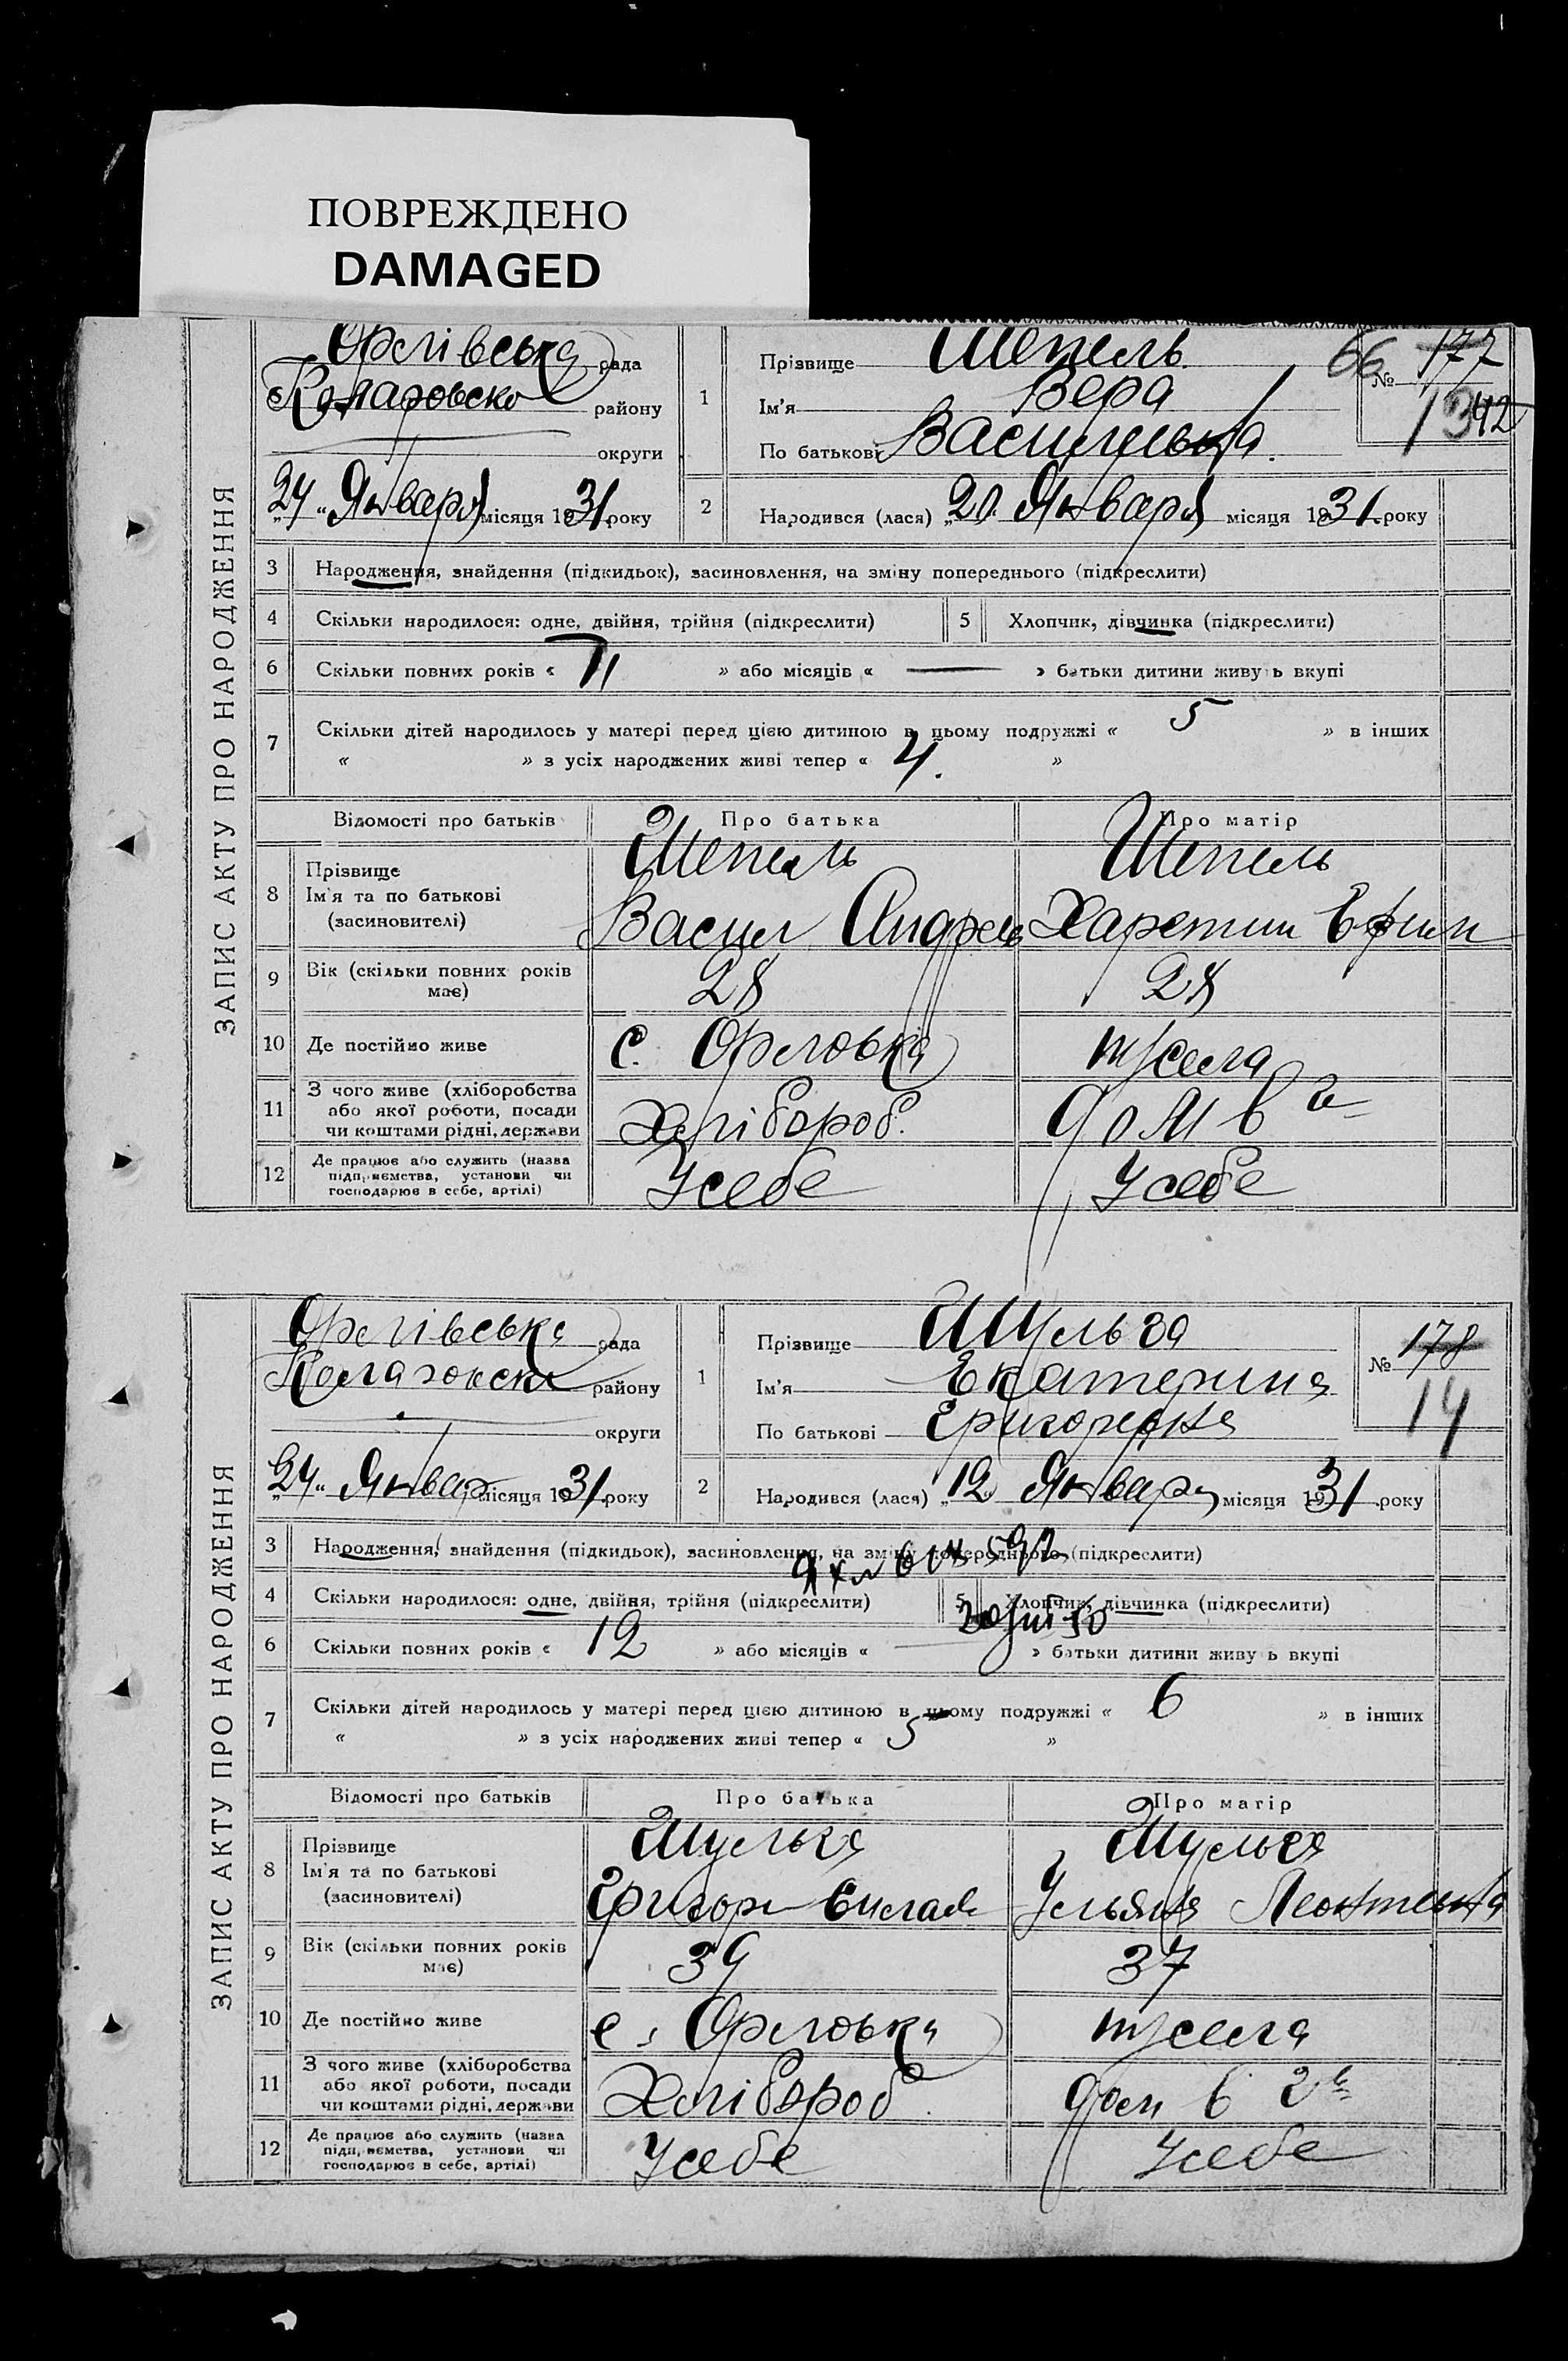 ПОВРЕЖДЕНО
DAMAGED
ЗАПИС АКТУ ПРО НАРОДЖЕННЯ
Орлівська рада
району
округи
"24" Января місяця 1931 року
1
Прізвище Шепель
Ім'я Вера
По батькові Васильевна
66 № 177
13 42
2
Народився (лася) "20" Января місяця 1931 року
3 Народження, знайдення (підкидьок), засиновлення, на зміну попереднього (підкреслити)
4 Скільки народилося: одне, двійня, трійня (підкреслити) 5 Хлопчик, дівчинка (підкреслити)
6 Скільки повних років « 11 » або місяців « — » батьки дитини живуть вкупі
7 Скільки дітей народилось у матері перед цією дитиною в цьому подружжі « 5 » в інших
« » з усіх народжених живі тепер « 4. »
Відомості про батьків Про батька Про матір
8 Прізвище
Ім'я та по батькові
(засиновителі)
Шепель
Васил Андреев
Шепель
Харетин Ефим
9 Вік (скільки повних років
має)
28
28
10 Де постійно живе с. Орловка
11 З чого живе (хліборобства
або якої роботи, посади
чи коштами рідні, держави
Хлібороб.
12 Де працює або служить (назва
підприємства, установи чи
господарює в себе, артілі)
У себе
У себе
ЗАПИС АКТУ ПРО НАРОДЖЕННЯ
Орлівська рада
району
округи
"24" Январ місяця 1931 року
1
Прізвище Шульга
Ім'я Екатерина
По батькові Григоревна
№ 178
14
2
Народився (лася) "12" Января місяця 1931 року
3 Народження, знайдення (підкидьок), засиновлення, на зміну попереднього (підкреслити)
4 Скільки народилося: одне, двійня, трійня (підкреслити) 5 Хлопчик, дівчинка (підкреслити)
6 Скільки повних років « 12 » або місяців « » батьки дитини живуть вкупі
7 Скільки дітей народилось у матері перед цією дитиною в цьому подружжі « 6 » в інших
« » з усіх народжених живі тепер « 5 »
Відомості про батьків Про батька Про матір
8 Прізвище
Ім'я та по батькові
(засиновителі)
Шульга
Григор
Шульга
Ульяна Леонтевна
9 Вік (скільки повних років
має)
39
37
10 Де постійно живе с. Орловка
11 З чого живе (хліборобства
або якої роботи, посади
чи коштами рідні, держави
Хлібороб.
12 Де працює або служить (назва
підприємства, установи чи
господарює в себе, артілі)
У себе
У себе